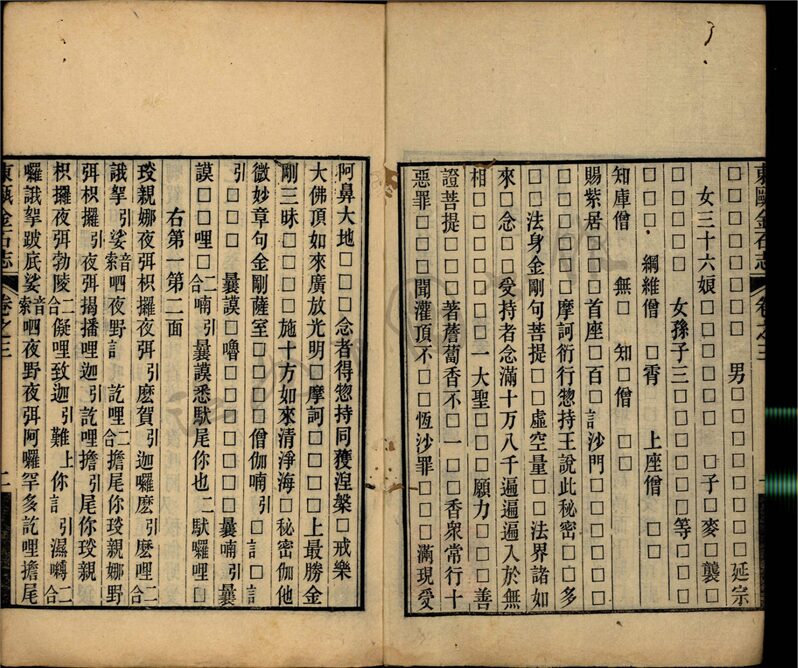 東甌金石志 卷之三
□□□□□□□ 男□□□□□□□延宗
女三十六娘□□□□□□子□麥□襲□
□□□□□ 女孫子三□□□□□□等□
□□□□ 綱維僧 □霄 上座僧 □□
知庫僧 無□ 知□僧 □□
賜紫居□□□□首座□百□訁沙門□□□□
□□□□□□摩訶衍行惣持王說此秘密□□多
□□法身金剛句菩提□□虛空量□□法界諸如
來□念□□受持者念滿十万八千遍遍遍入於無
相□□□□□□一大聖□□□願力□□□□善
證菩提□□□著薝蔔香不□一□□香衆常行十
惡罪□□□聞灌頂不□□恆沙罪□□□□滿現受
阿鼻大地□□□□念者得惣持同獲涅槃□戒樂
大佛頂如來廣放光明□摩訶□□□□□上最勝金
剛三昧□□□□□施十方如來清淨海□秘密伽他
微妙章句金剛薩室□□□□□僧伽喃引□□訁□訁
引□□□□ 曩謨□嚕□□□□□□□曩喃引曩
謨□□□哩□二合喃引曩謨悉馱尾你也二馱囉哩□
右第一第二面
琰親娜夜弭枳攞夜弭引麽賀引迦囉麽引麽哩二合
誐拏引娑音索呬夜野訁 訖哩二合擔尾你琰親娜野
弭枳攞引夜弭揭播哩迦引訖哩擔引尾你琰親
枳攞夜弭勃陵二合儗哩致迦引難上你訁引濕嚩二合
囉誐拏跛底娑音索呬夜野夜弭阿囉罕多訖哩擔尾
東甌金石志 卷之三 二